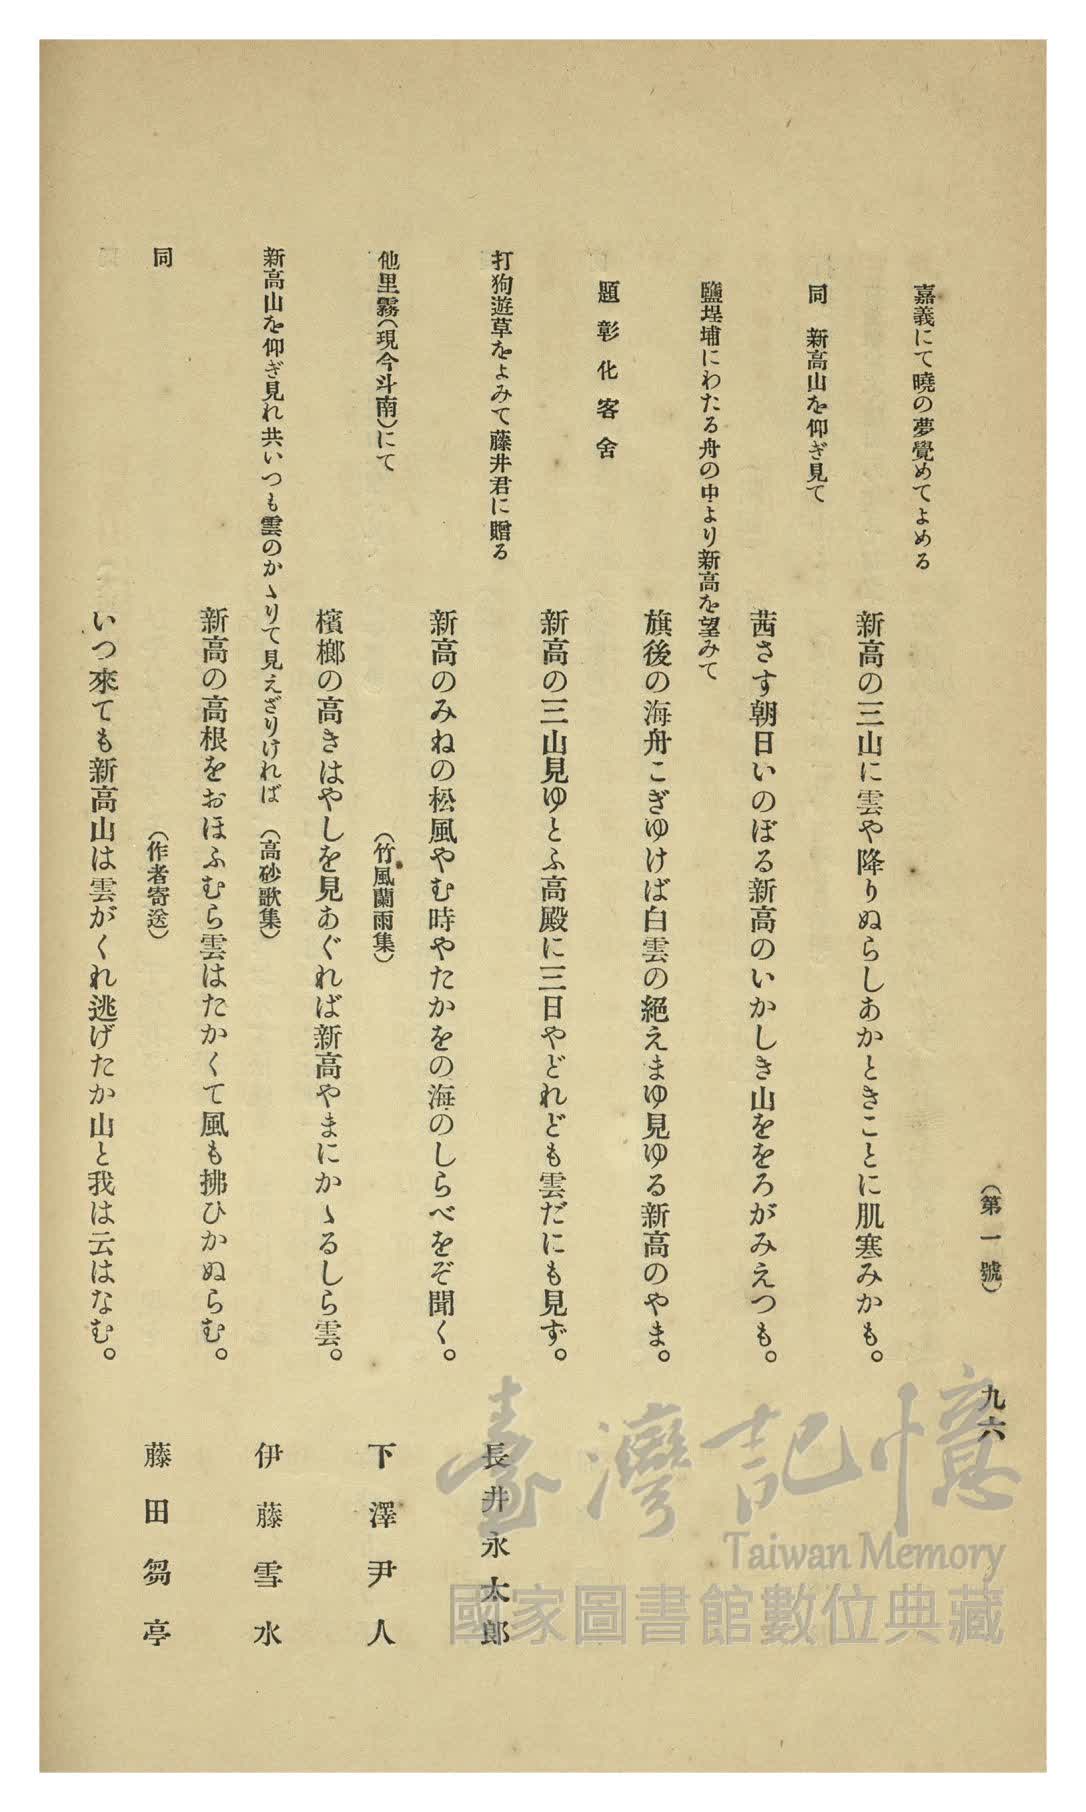 (第一號)　九六
嘉義にて曉の夢覺めてよめる
新高の三山に雲や降りぬらしあかときことに肌寒みかも。
同　新高山を仰ぎ見て
茜さす朝日いのぼる新高のいかしき山ををろがみえつも。
鹽埕埔にわたる舟の中より新高を望みて
旗後の海舟こぎゆけば白雲の絕えまゆ見ゆる新高のやま。
題彰化客舍
新高の三山見ゆとふ高殿に三日やどれども雲だにも見ず。
打狗遊草をよみて藤井君に贈る　長井永太郎
新高のみねの松風やむ時やたかをの海のしらべをぞ聞く。
他里霧(現今斗南)にて　(竹風蘭雨集)　下澤尹人
檳榔の高きはやしを見あぐれば新高やまにかゝるしら雲。
新高山を仰ぎ見れ共いつも雲のかゝりて見えざりければ　(高砂歌集)　伊藤雪水
新高の高根をおほふむら雲はたかくて風も拂ひかぬらむ。
同　(作者寄送)　藤田芻亭
いつ來ても新高山は雲がくれ逃げたか山と我は云はなむ。
臺灣記憶
Taiwan Memory
國家圖書館數位典藏